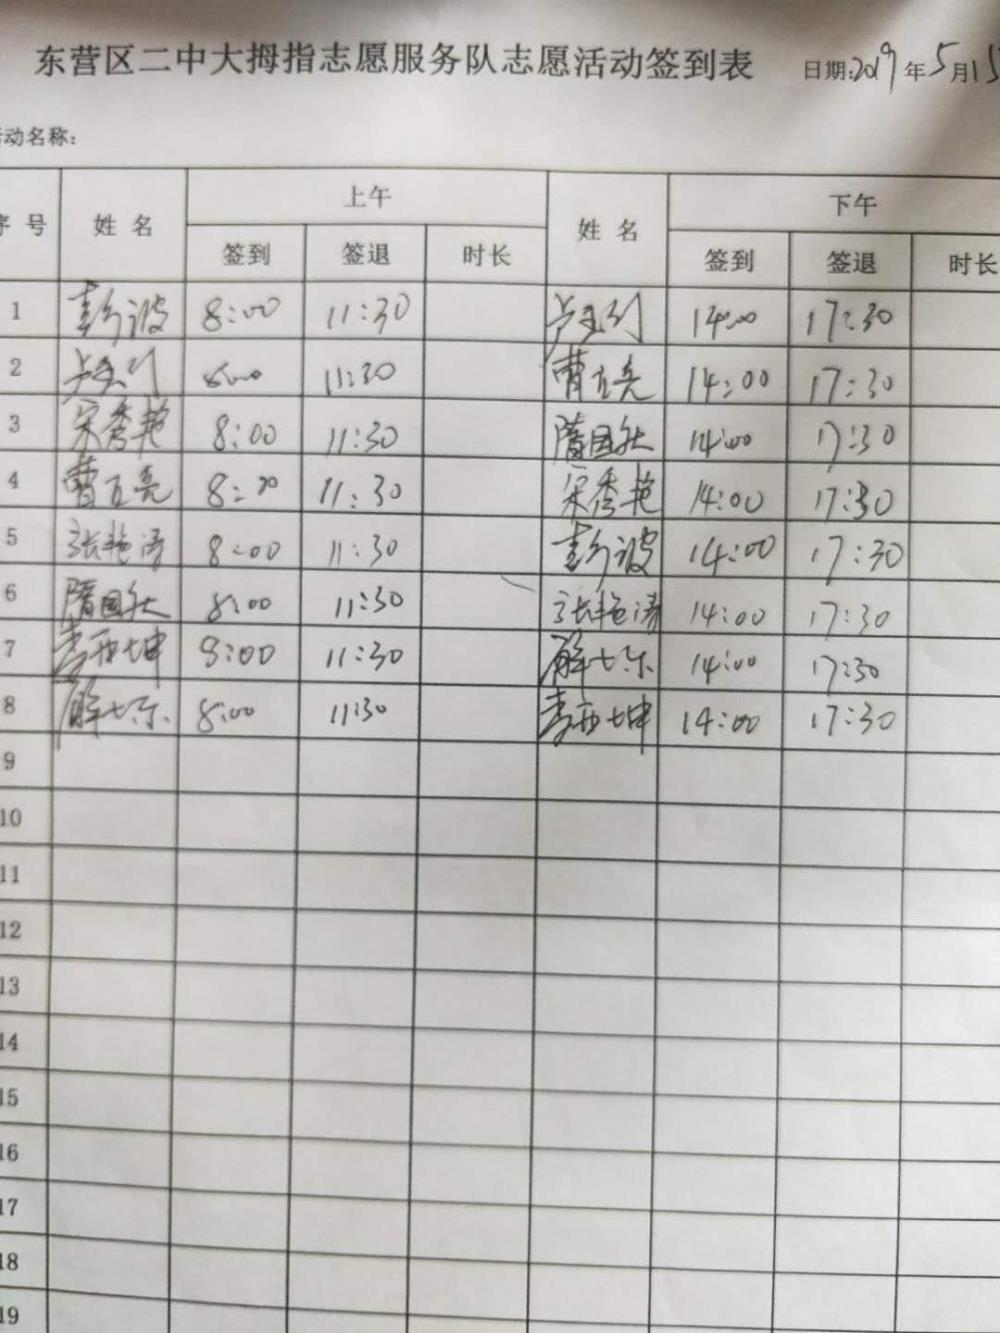 东营区二中大拇指志愿服务队志愿活动签到表 日期:2019年5月15
活动名称:
序号 姓名 上午 姓名 下午
签到 签退 时长 签到 签退 时长
1 彭波 8:00 11:30 14:00 17:30
2 8:00 11:30 曹互亮 14:00 17:30
3 宋秀艳 8:00 11:30 隋国 14:00 17:30
4 曹互亮 8:00 11:30 宋秀艳 14:00 17:30
5 张艳涛 8:00 11:30 彭波 14:00 17:30
6 隋国 8:00 11:30 张艳涛 14:00 17:30
7 李西坤 8:00 11:30 解 14:00 17:30
8 解 8:00 11:30 李西坤 14:00 17:30
9
10
11
12
13
14
15
16
17
18
19